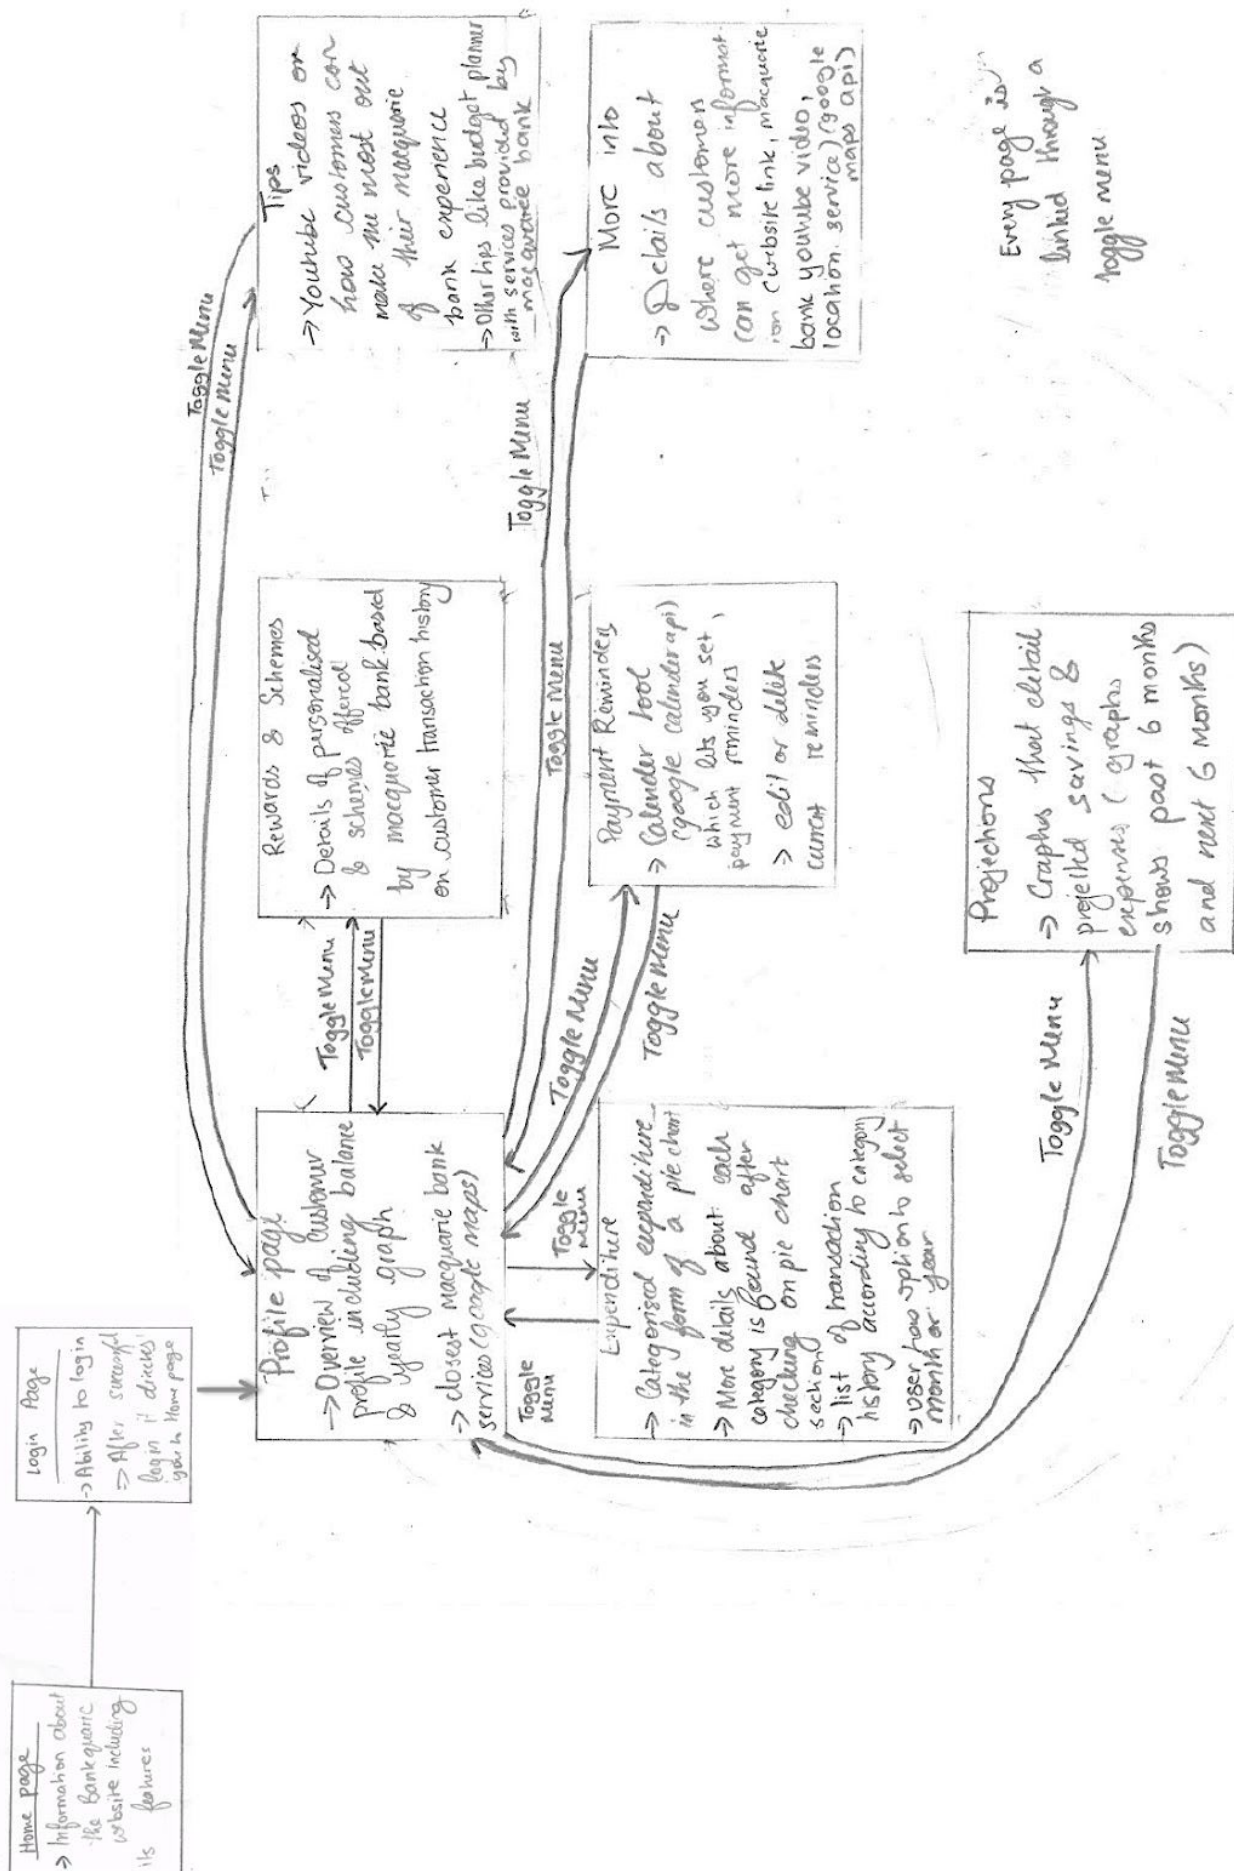 Home page
→ Information about
the Bankquarie
website including
its features
Login Page
→ Ability to login
→ After successful
login it directs
you to Home page
Profile page
→ Overview of customer
profile including balance
& yearly graph
→ closest macquarie bank
services (google maps)
Toggle Menu
Toggle Menu
Rewards & Schemes
→ Details of personalised
& schemes offered
by macquarie bank based
on customer transaction history
Toggle Menu
Toggle Menu
Tips
→ Youtube videos on
how customers can
make the most out
of their macquarie
bank experience
→ Other tips like budget planner
with services provided by
macquarie bank
Toggle Menu
Toggle Menu
More info
→ Details about
where customers
can get more informat-
ion (website link, macquarie
bank youtube video,
location service) (google
maps api)
Toggle Menu
Toggle Menu
Payment Reminders
→ Calender tool
(google calender api)
which lets you set
payment reminders
→ edit or delete
current reminders
Toggle
Menu
Toggle
Menu
Expenditure
→ Categorised expenditure
in the form of a pie chart
→ More details about each
category is found after
checking on pie chart
section
→ list of transaction
history according to category
→ user has option to select
month or year
Toggle Menu
Toggle Menu
Projections
→ Graphs that detail
projected savings &
expenses (graphs
shows past 6 months
and next 6 months)
Every page is
linked through a
toggle menu